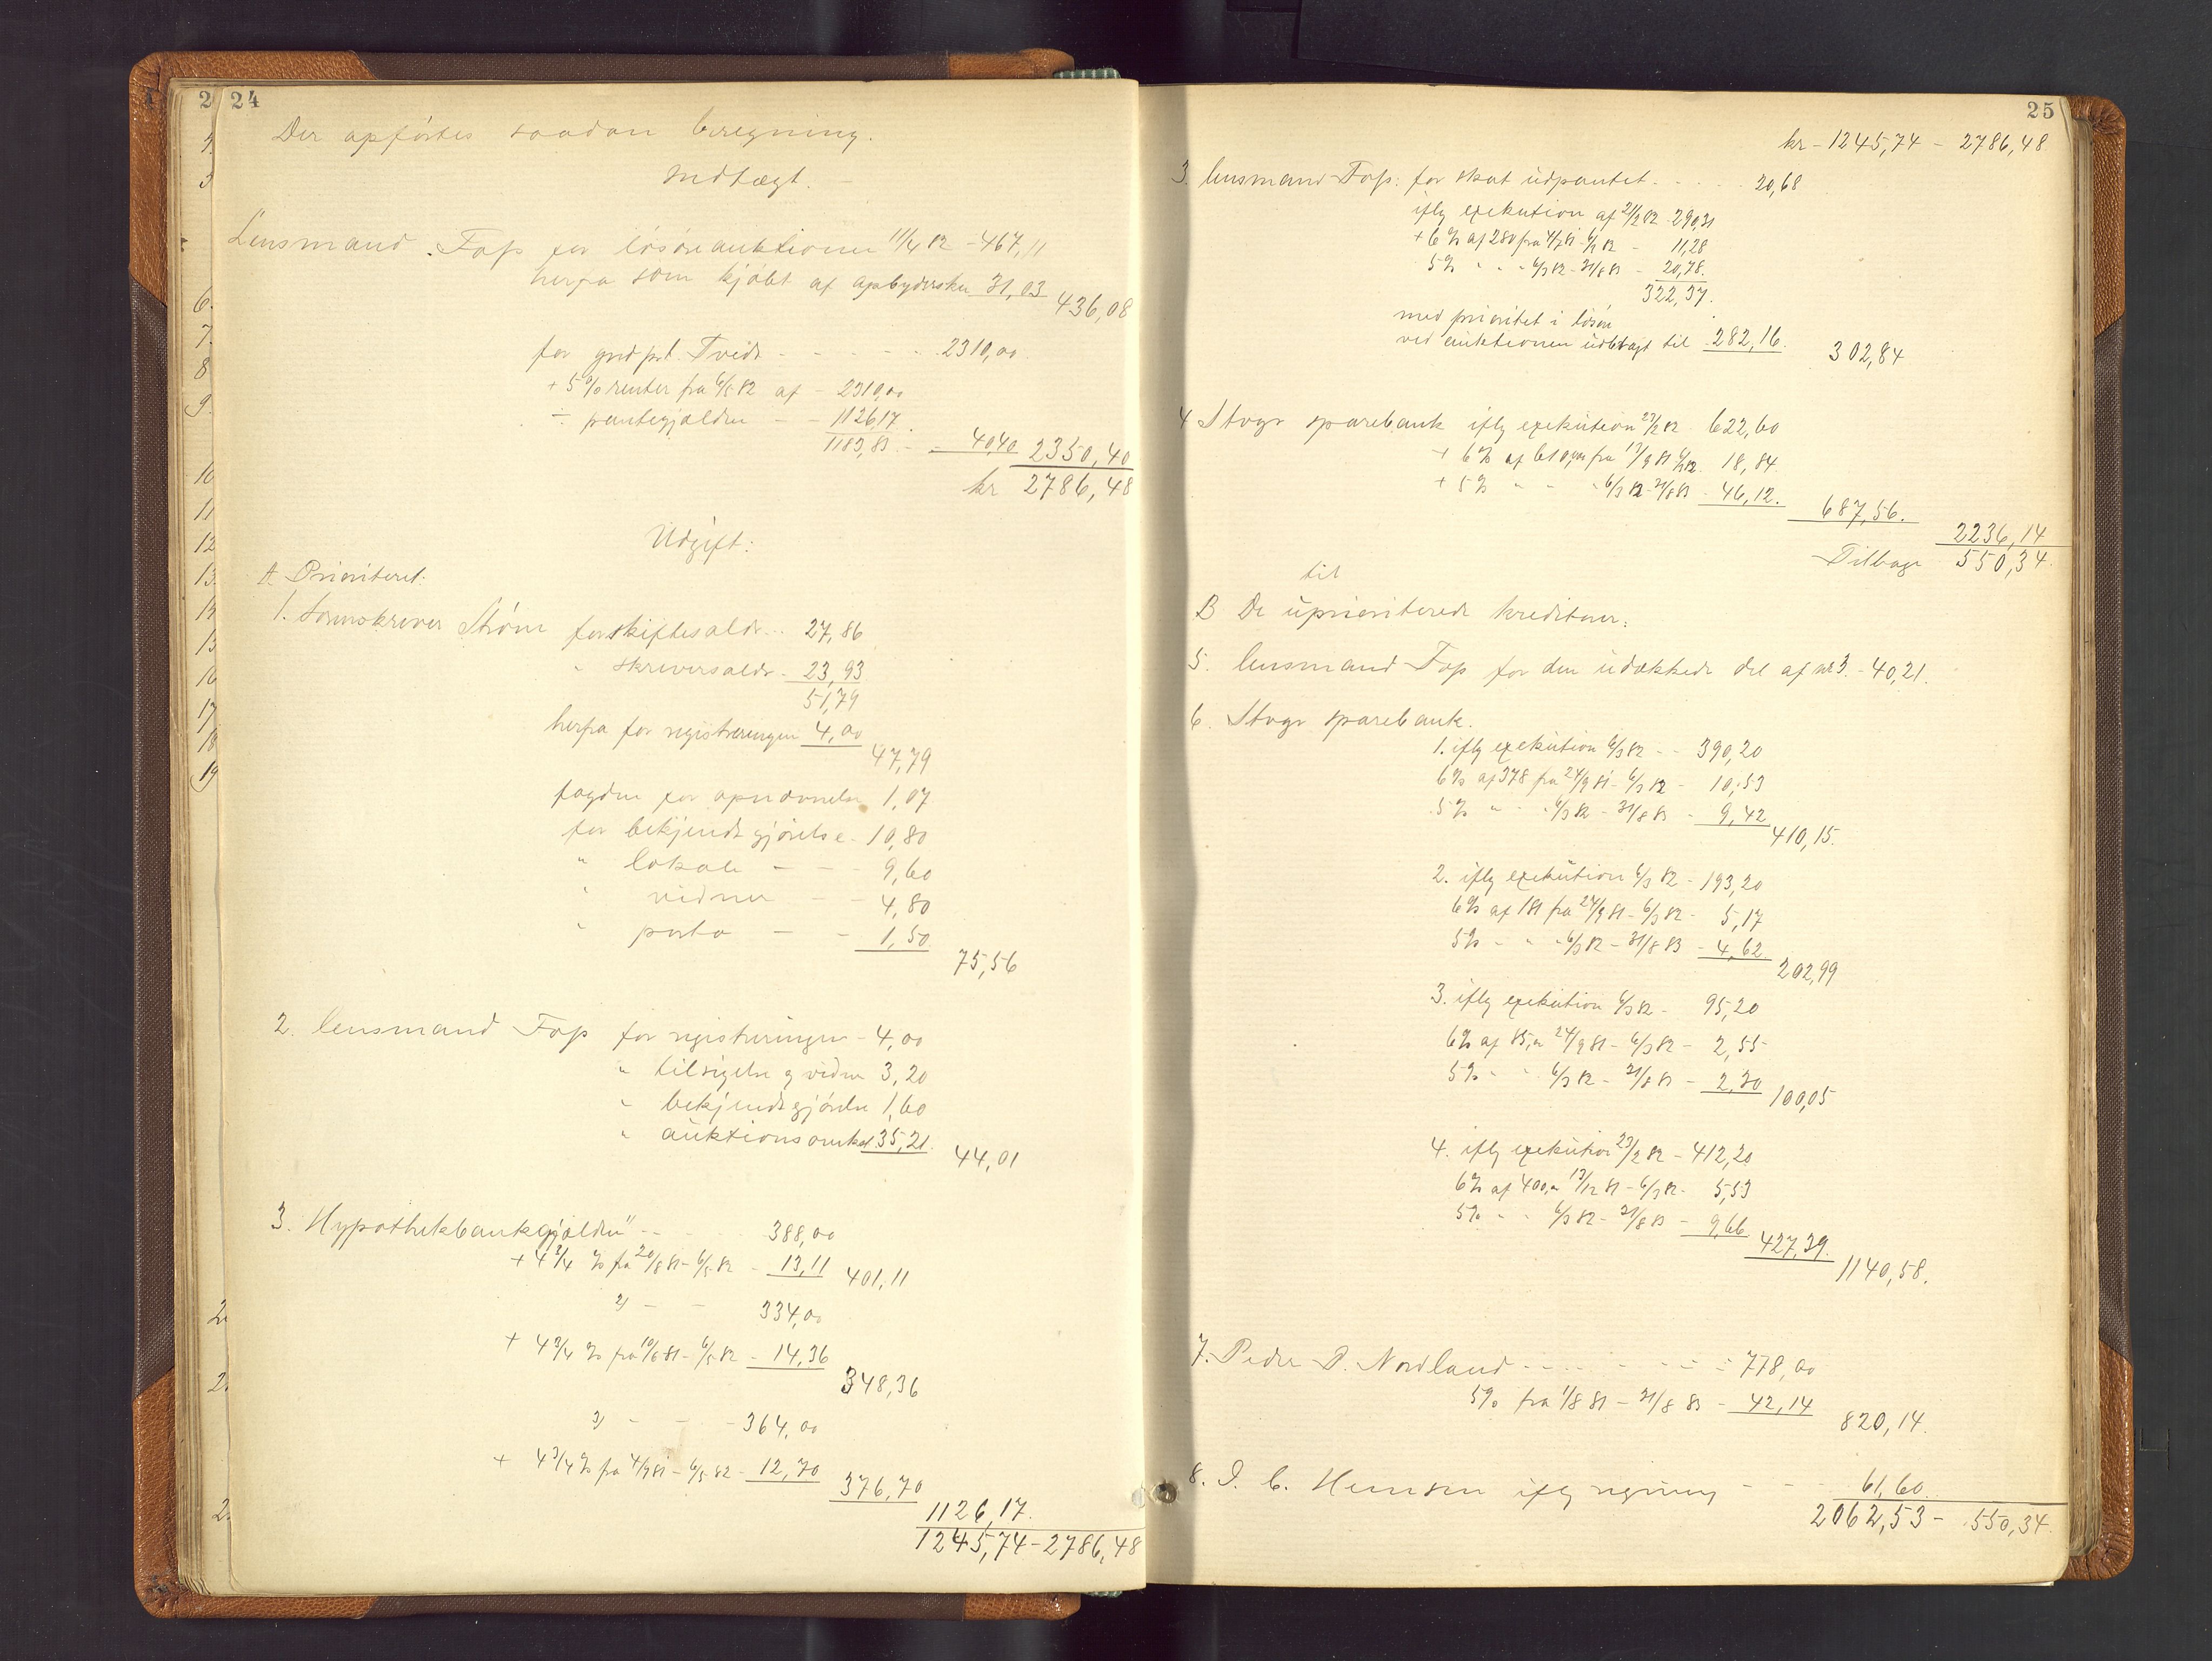 24
Der opförtes saadan beregning.
Indtægt.
Lensmand Fop for lösöreauktionen 11/4 82 - 467,11
herfra som kjöbt af opbydersken 31,03
436,08
for grd prt. Tveit - - - - 2310,00
+ 5% renter fra 6/5 82 af - 2310,00
÷ pantegjælden - - 1126,17
1183,83 - - 40,40 2350,40
kr 2786,48
Udgift:
A. Prioriteret:
1. Sorenskriver Ström for skiftesaldo - 27,86
" skriversaldo - 23,93
51,79
herfra for registreringen 4,00
47,79
fogden for opnævnelse 1,07
for bekjendtgjörelse - 10,80
" lokale - - - 9,60
" vidner - - 4,80
" porto - - 1,50
75,56
2. lensmand Fop for registreringen - 4,00
" tilsigelse og vidne 3,20
" bekjendtgjörelse 1,60
" auktionsomkst 35,21
44,01
3. Hypothekbankgjælden 1) - - 388,00
+ 4 3/4 % fra 20/8 81 - 6/5 82 - 13,11 401,11
2) - - 334,00
+ 4 3/4 % fra 10/6 81 - 6/5 82 - 14,36
348,36
3) - - - 364,00
+ 4 3/4 % fra 4/9 81 - 6/5 82 - 12,70
376,70
1126,17.
1245,74 - 2786,48
25
kr - 1245,74 - 2786,48
3. lensmand Fop: for skat udpantet - - - - 20,68
iflg exekution af 21/2 82 - 290,31
+ 6% af 280 fra 4/7 81 - 6/3 82 - 11,28
5% " " - 6/3 82 - 31/8 83 - 20,78.
322,37.
med prioritet i lösöre
ved auktionen udbragt til 282,16.
302,84
4 Stvgr sparebank iflg exekution 23/2 82 622,60
+ 6% af 610,00 fra 13/9 81 6/3 82. 18,84
+ 5% " " - 6/3 82 - 31/8 83 - 46,12.
687,56.
2236,14
Tilbage 550,34.
til
B De uprioriterede kreditorer:
5. lensmand Fop for den udækkede del af no 3. - 40,21.
6. Stvgr sparebank.
1. iflg exekution 6/3 82 - - 390,20
6% af 378 fra 24/9 81 - 6/3 82 - 10,53
5% " " - 6/3 82 - 31/8 83 - 9,42
410,15.
2. iflg exekution 6/3 82 - 193,20
6% af 181 fra 24/9 81 - 6/3 82 - 5,17
5% - " - 6/3 82 - 31/8 83 - 4,62
202,99
3. iflg exekution 6/3 82 - 95,20
6% af 85,00 24/9 81 - 6/3 82 - 2,55
5% - " 6/3 82 - 31/8 83 - 2,30
100,05
4. iflg exekution 23/2 82 - 412,20
6% af 400,00 13/12 81 - 6/3 82 - 5,53
5% - - 6/3 82 - 31/8 83 - 9,66
427,39.
1140,58.
7. Peder P. Nordland - - - - - - 778,00
5% fra 1/8 81 - 31/8 83 - 42,14
820,14.
8. I. C. Hemsen iflg regning - - - 61,60.
2062,53 - 550,34.